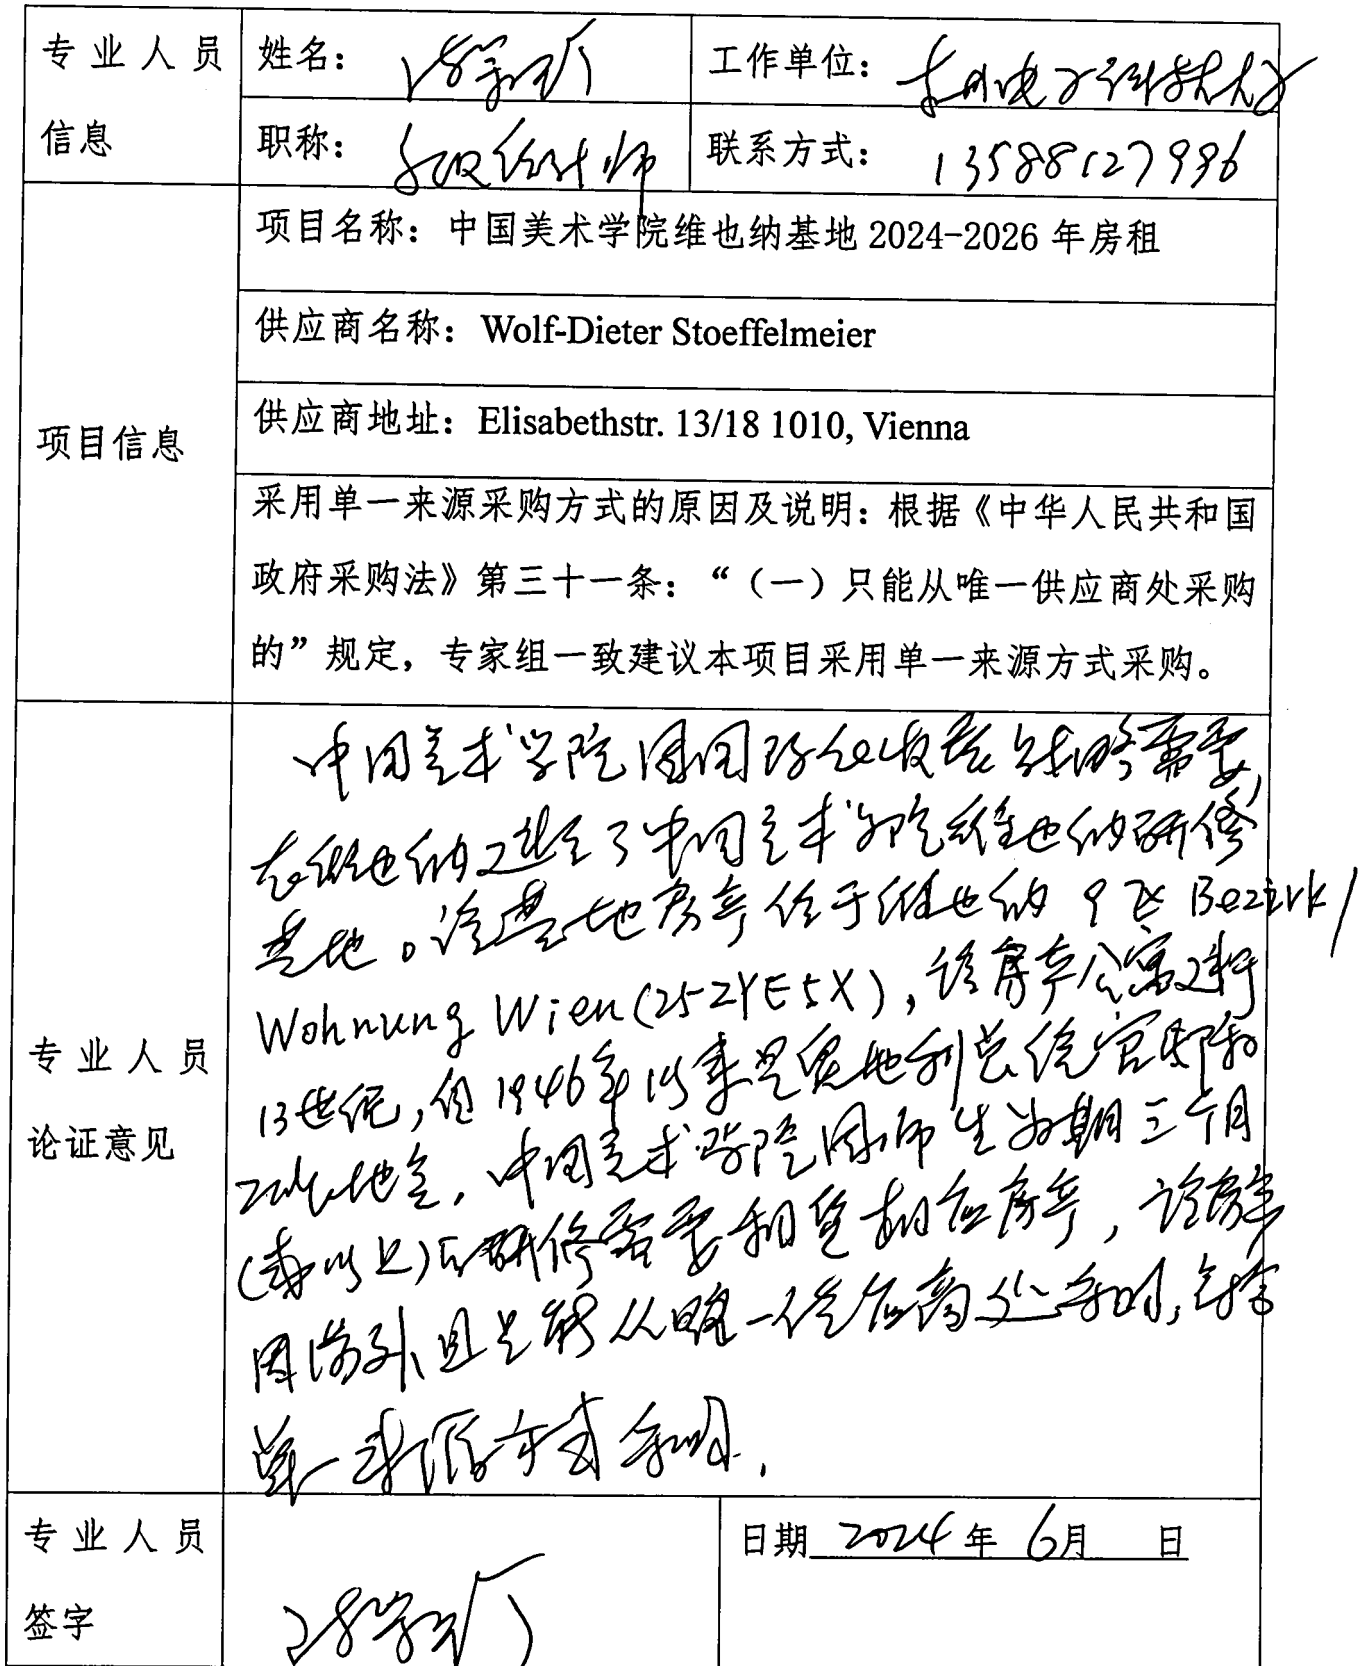 专业人员信息
姓名：
工作单位：杭州电子科技大学
职称：高级会计师
联系方式：13588127996
项目信息
项目名称：中国美术学院维也纳基地 2024-2026 年房租
供应商名称：Wolf-Dieter Stoeffelmeier
供应商地址：Elisabethstr. 13/18 1010, Vienna
采用单一来源采购方式的原因及说明：根据《中华人民共和国
政府采购法》第三十一条：“（一）只能从唯一供应商处采购
的”规定，专家组一致建议本项目采用单一来源方式采购。
专业人员
论证意见
中国美术学院因国际化发展战略需要，
在维也纳建立了中国美术学院维也纳研修
基地。该基地房产位于维也纳 9区 Bezirk/
Wohnung Wien(252YE5X)，该房产公寓建于
13世纪，但1946年以来是奥地利总统官邸和
办公地点，中国美术学院因师生为期三个月
(或以上)的研修需要租赁相应房产，该房产
因境外且只能从唯一供应商处采购，符合
单一来源方式采购.
专业人员
签字
日期 2024 年 6月 日